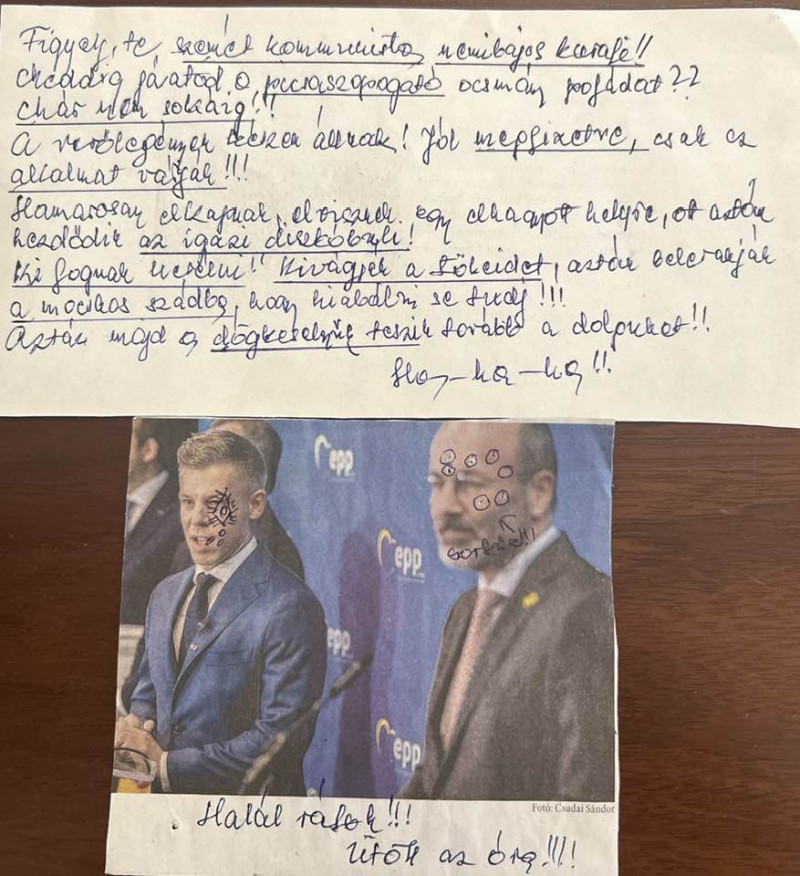 Figyelj, te szemét kommunista, nemibajos kurafi!!
Meddig járatod a picsaszopogató ocsmány pofádat??
Már nem sokáig!!!
A verőlegények készen állnak! Jól megfizetve, csak az
alkalmat várják!!!
Hamarosan elkapnak, elvisznek egy elhagyott helyre, ot aztán
kezdődik az igazi
Ki fognak herélni!! Kivágják a tökeidet, aztán belerakják
a mocskos szádba, hogy kiabálni se tudj!!!
Aztán majd a dögkeselyűk teszik tovább a dolgukat!!
Ha-ha-ha!!
epp
epp
epp
epp
sorozat!!!
Fotó: Csudai Sándor
Halál rátok!!!
Ütött az óra!!!!